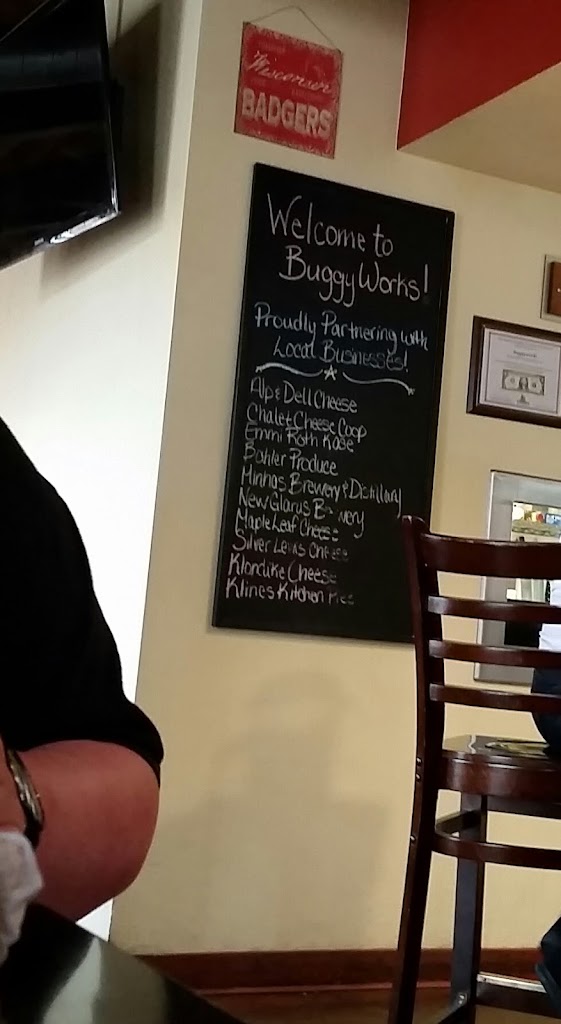 Wisconsin
BADGERS
Welcome to
Buggy Works!
Proudly Partnering with
Local Businesses!
Alp & Dell Cheese
Chalet Cheese Coop
Emmi Roth Kase
Bahler Produce
Minhas Brewery & Distillary
New Glarus
Maple Leaf Cheese
Silver Lewis Cheese
Klondike Cheese
Klines Kitchen Pies